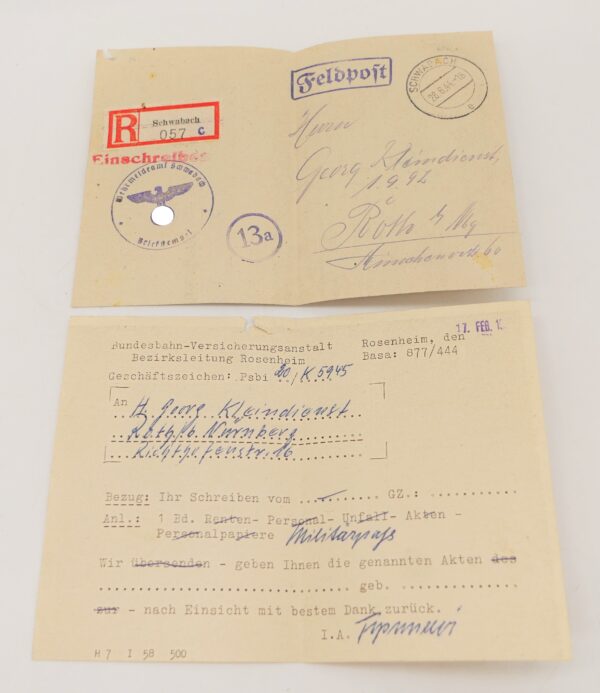 Feldpost
SCHWABACH
28.8.44.-18
c
R
Schwabach
057 c
Einschreiben
Wehrmeldeamt Schwabach
Briefstempel
13a
Herrn
Georg Kleindienst,
Roth b/ Nbg
Bundesbahn-Versicherungsanstalt
Bezirksleitung Rosenheim
Rosenheim, den 17. FEB. 1
Basa: 877/444
Geschäftszeichen: Psbi 20/K 5945
An
H. Georg Kleindienst
Roth/b. Nürnberg
Richthofenstr. 16
Bezug: Ihr Schreiben vom .......... GZ.: ..........
Anl.: 1 Bd. Renten- Personal- Unfall- Akten -
Personalpapiere Militärpass
Wir übersenden - geben Ihnen die genannten Akten des
................................ geb. ...............
zur - nach Einsicht mit bestem Dank zurück.
I.A.
H 7 I 58 500